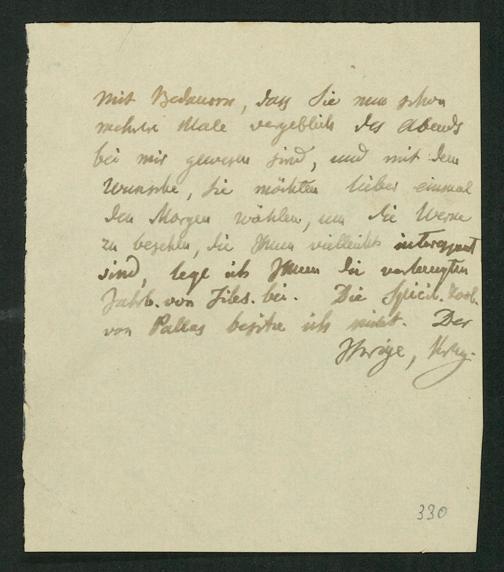 Mit Bedauern, dass Sie nun schon
mehrere Male vergeblich des Abends
bei mir gewesen sind, und mit dem
Wunsche, Sie möchten lieber einmal
den Morgen wählen, um die Werke
zu besehen, die Ihnen vielleicht interessant
sind, lege ich Ihnen die verlangten
Jahrb. von Siles. bei. Die Spicil. Zool.
von Pallas besitze ich nicht. Der
Ihrige,
330